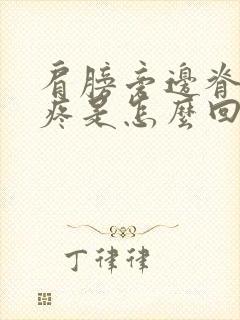 肩膀旁邊脊
疼是怎麼回
丁律律